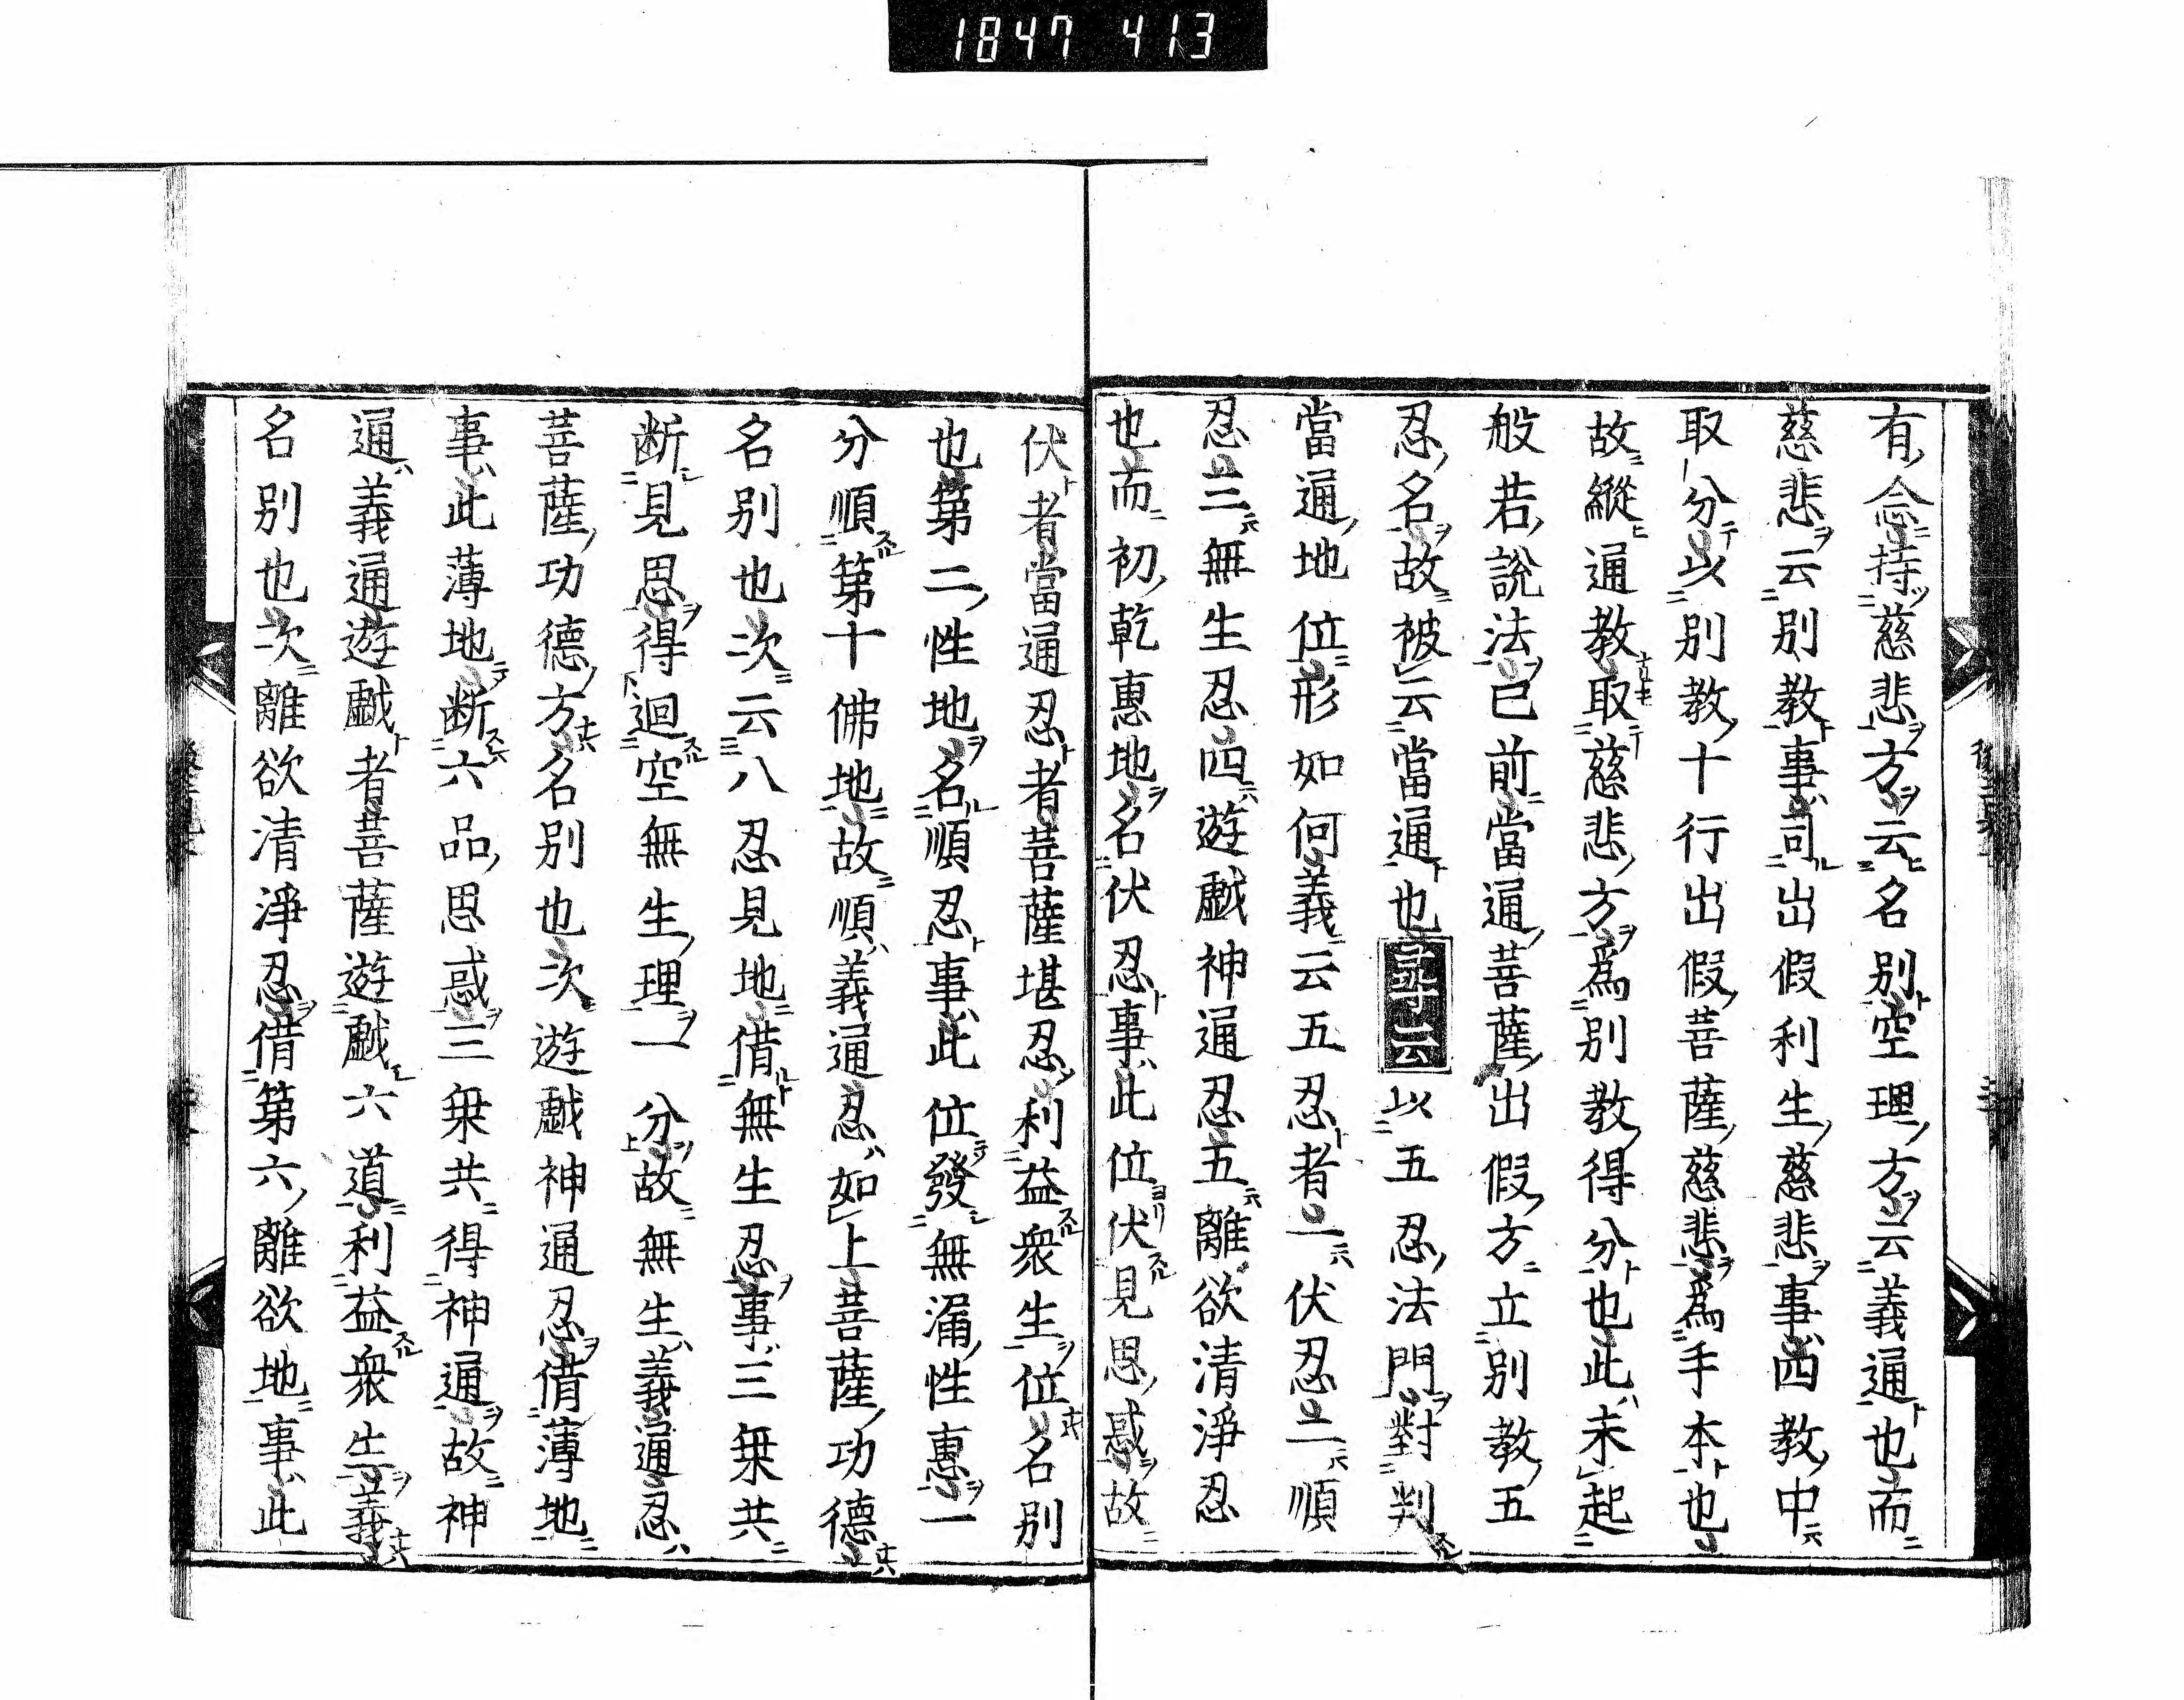 1847 413
有念持慈悲方云名別空理方云義通也而
慈悲云別教事司出假利生慈悲事四教中
取分以別教十行出假菩薩慈悲爲手本也
故縱通教取慈悲方爲別教得分也此未起
般若說法已前當通菩薩出假方立別教五
忍名故被云當通也 云以五忍法門對判
當通地位形如何義云五忍者一伏忍二順
忍三無生忍四遊戱神通忍五離欲清淨忍
也而初乾惠地名伏忍事此位伏見思惑故
伏者當通忍者菩薩堪忍利益衆生位名別
也第二性地名順忍事此位發無漏性惠一
分順第十佛地故順義通忍如上菩薩功德
名別也次云八忍見地借無生忍事三乗共
断見思得迴空無生理一分故無生義通忍
菩薩功德方名別也次遊戱神通忍借薄地
事此薄地断六品思惑三乗共得神通故神
通義通遊戱者菩薩遊戱六道利益衆生義
名別也次離欲清淨忍借第六離欲地事此